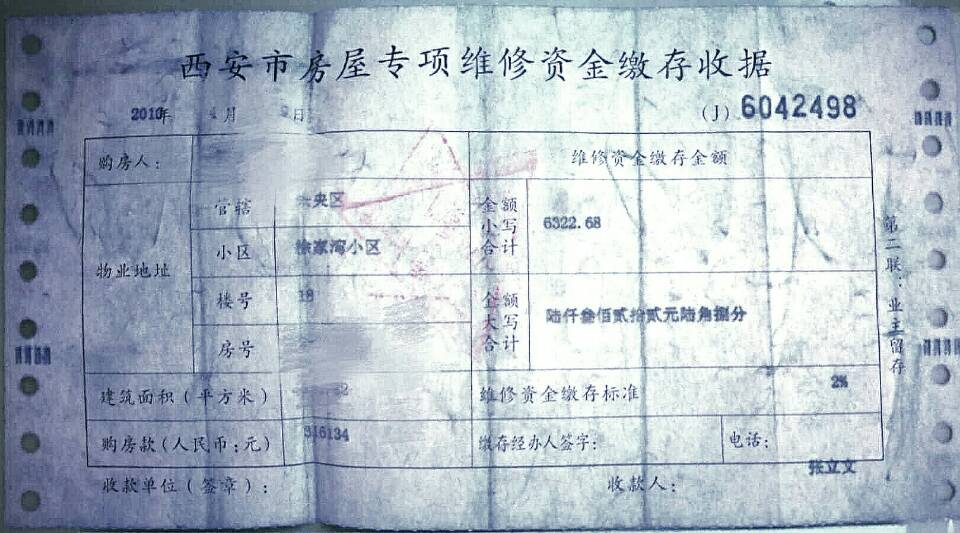 西安市房屋专项维修资金缴存收据
2010年 月 日 (J) 6042498
购房人: 维修资金缴存金额
物业地址
管辖 未央区
小区 徐家湾小区
楼号 18
房号
金额小写合计 6322.68
金额大写合计 陆仟叁佰贰拾贰元陆角捌分
建筑面积(平方米) 维修资金缴存标准 2%
购房款(人民币:元) 316134 缴存经办人签字: 电话:
收款单位(签章): 收款人: 张立文
第二联:业主留存